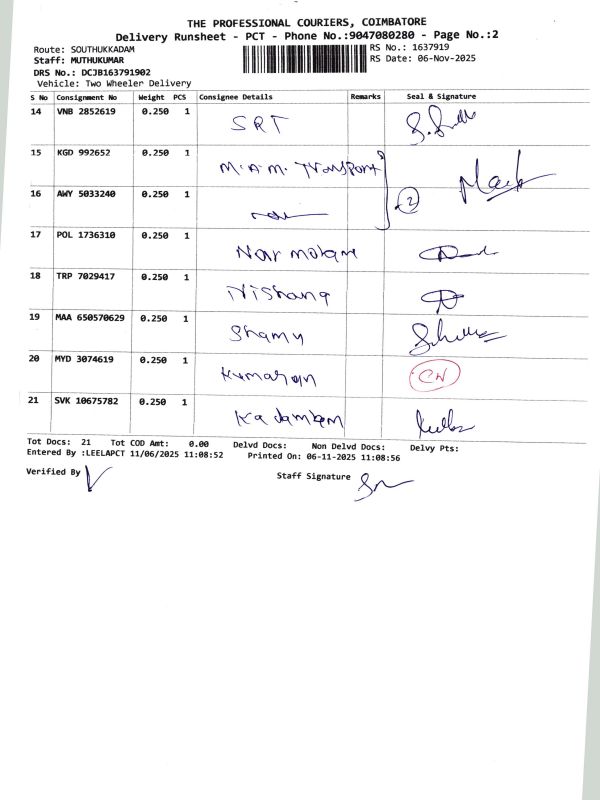 THE PROFESSIONAL COURIERS, COIMBATORE
Delivery Runsheet - PCT - Phone No.:9047080280 - Page No.:2
Route: SOUTHUKKADAM RS No.: 1637919
Staff: MUTHUKUMAR RS Date: 06-Nov-2025
DRS No.: DCJB163791902
Vehicle: Two Wheeler Delivery
S No Consignment No Weight PCS Consignee Details Remarks Seal & Signature
14 VNB 2852619 0.250 1 SRT
15 KGD 992652 0.250 1 M.A.M. Transport
16 AWY 5033240 0.250 1 2
17 POL 1736310 0.250 1
18 TRP 7029417 0.250 1 Nishang
19 MAA 650570629 0.250 1 Shamy
20 MYD 3074619 0.250 1 Kumaran CN
21 SVK 10675782 0.250 1
Tot Docs: 21 Tot COD Amt: 0.00 Delvd Docs: Non Delvd Docs: Delvy Pts:
Entered By :LEELAPCT 11/06/2025 11:08:52 Printed On: 06-11-2025 11:08:56
Verified By Staff Signature